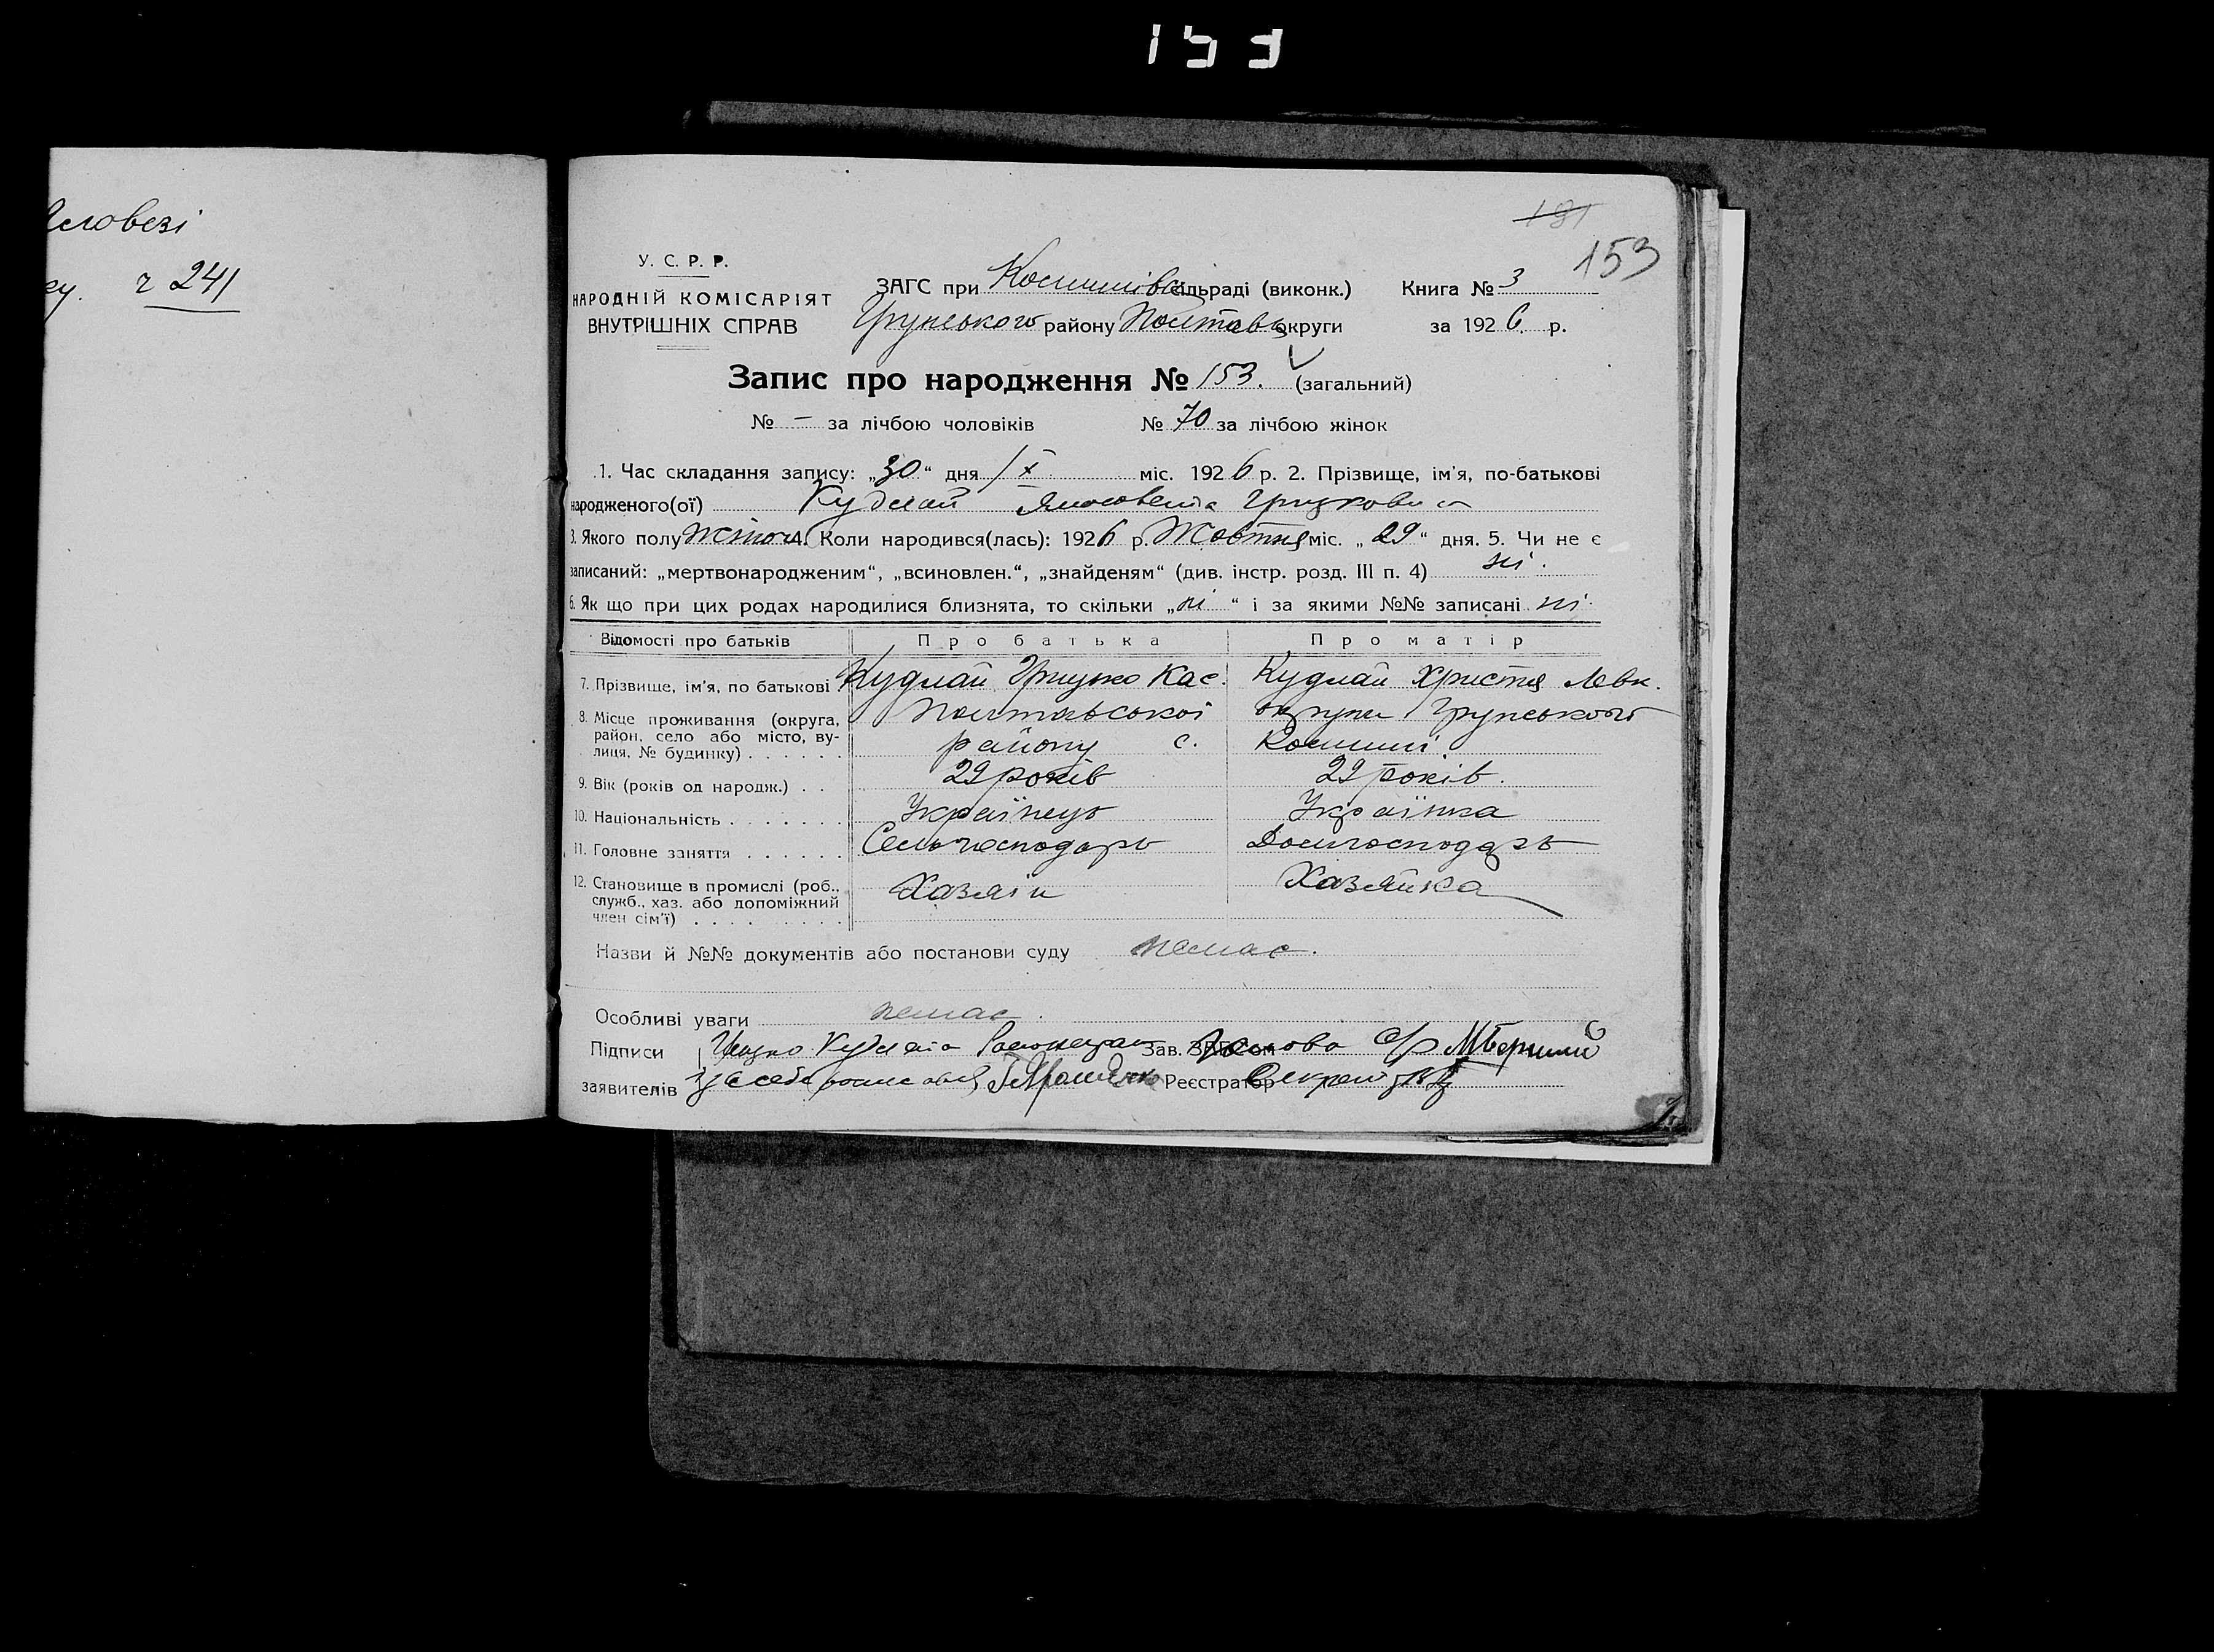 153
181
153
ловезі
ку. г 241
У. С. Р. Р.
НАРОДНІЙ КОМІСАРІЯТ
ВНУТРІШНІХ СПРАВ
ЗАГС при сільраді (виконк.) Книга № 3
Грунського району Полтавс округи за 1926 р.
Запис про народження № 153. (загальний)
№ – за лічбою чоловіків № 70 за лічбою жінок
1. Час складання запису: „30“ дня / X міс. 1926 р. 2. Прізвище, ім'я, по-батькові
народженого(ої) Кудлай
3. Якого полу жіноч. 4. Коли народився(лась): 1926 р. Жовтня міс. „29“ дня. 5. Чи не є
записаний: „мертвонародженим“, „всиновлен.“, „знайденям“ (див. інстр. розд. III п. 4) ні.
6. Як що при цих родах народилися близнята, то скільки „ні“ і за якими №№ записані ні.
Відомості про батьків Про батька Про матір
7. Прізвище, ім'я, по батькові Кудлай Грицько Кас. Кудлай Христя Левк.
8. Місце проживання (округа, район, село або місто, вулиця, № будинку) Полтавської округи Грунського
району с.
9. Вік (років од народж.) 29 років 29 років.
10. Національність Українець Українка
11. Головне заняття Селогосподарь Домгосподарь
12. Становище в промислі (роб., служб., хаз. або допоміжний член сім'ї) Хазяїн Хазяйка
Назви й №№ документів або постанови суду немає.
Особливі уваги немає.
Підписи Грицько Кудлай Зав. ЗАГСом Голова с/р
заявителів Реєстратор Секрет